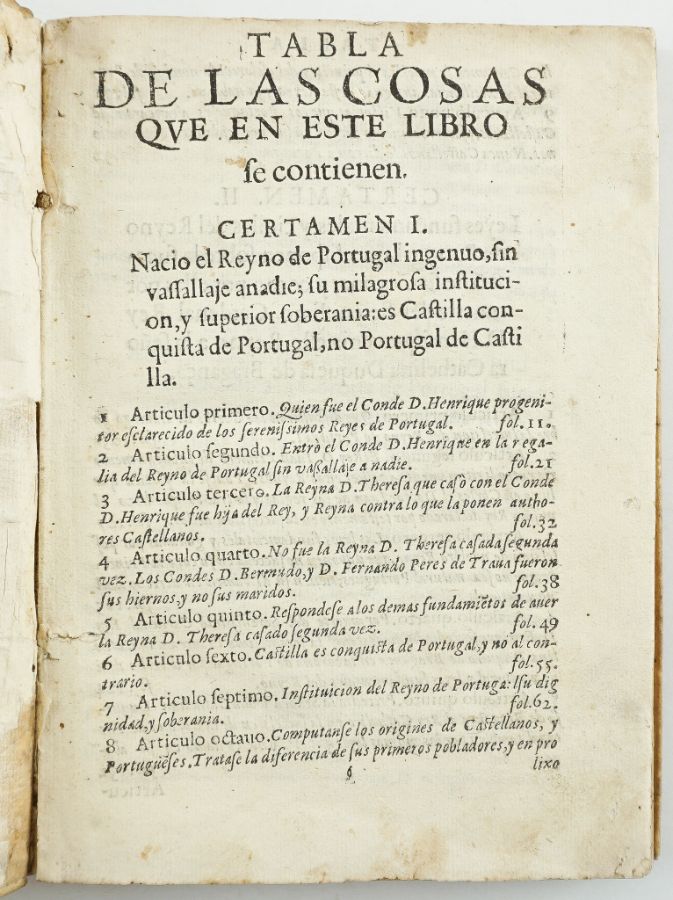 TABLA
DE LAS COSAS
QVE EN ESTE LIBRO
ſe contienen.
CERTAMEN I.
Nacio el Reyno de Portugal ingenuo, ſin
vaſſallaje anadie; ſu milagroſa inſtituci-
on, y ſuperior ſoberania: es Caſtilla con-
quiſta de Portugal, no Portugal de Caſti
lla.
1 Articulo primero. Quien fue el Conde D. Henrique progeni-
tor eſclarecido de los ſereniſsimos Reyes de Portugal. fol. 11.
2 Articulo ſegundo. Entrò el Conde D. Henrique en la rega-
lia del Reyno de Portugal ſin vaßallaje a nadie. fol. 21
3 Articulo tercero. La Reyna D. Thereſa que caſò con el Conde
D. Henrique fue hija del Rey, y Reyna contra lo que la ponen autho-
res Caſtellanos. fol. 32
4 Articulo quarto. No fue la Reyna D. Thereſa caſada ſegunda
vez. Los Condes D. Bermudo, y D. Fernando Peres de Traua fueron
ſus hiernos, y no ſus maridos. fol. 38
5 Articulo quinto. Reſpondeſe alos demas fundamiẽtos de auer
la Reyna D. Thereſa caſado ſegunda vez. fol. 49
6 Articulo ſexto. Caſtilla es conquiſta de Portugal, y no al con-
trario. fol. 55.
7 Articulo ſeptimo. Inſtituicion del Reyno de Portuga: lſu dig
nidad, y ſoberania. fol. 62.
8 Articulo octauo. Computanſe los origines de Caſtellanos, y
Portugüeſes. Trataſe la diferencia de ſus primeros pobladores, y en pro
lixo